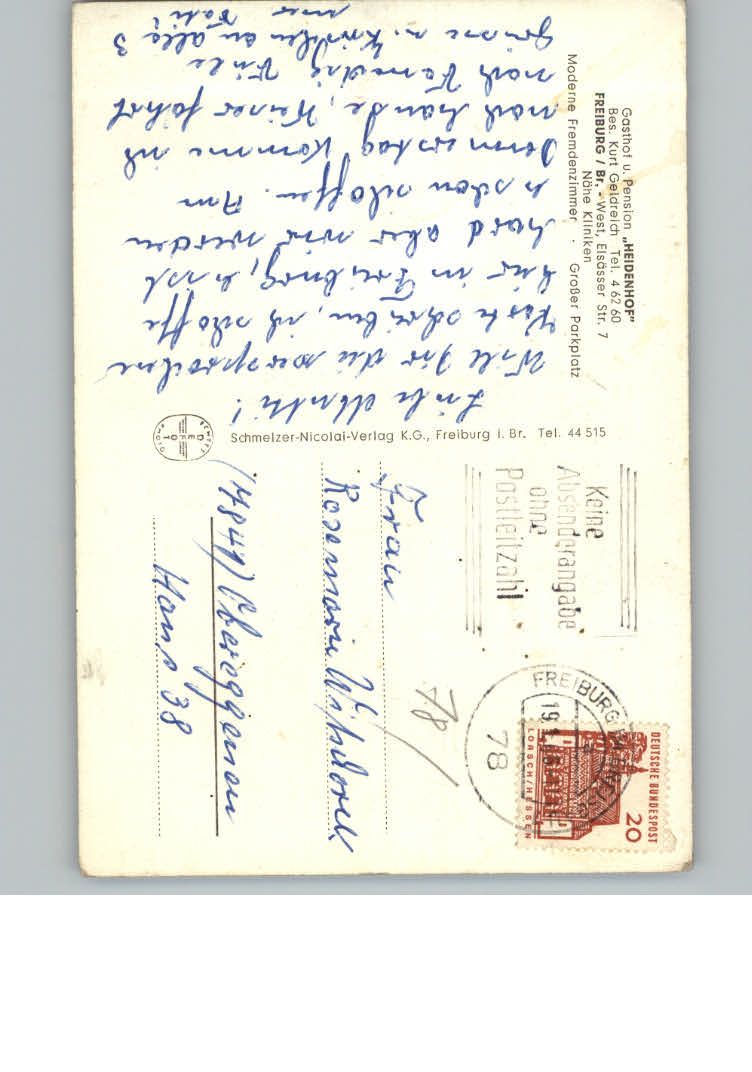 Gasthof u. Pension „HEIDENHOF"
Bes. Kurt Geldreich Tel. 4 62 60
FREIBURG / Br. - West, Elsässer Str. 7
Nähe Kliniken
Moderne Fremdenzimmer · Großer Parkplatz
Liebe
Will Dir die versprochene
Karte schreiben, ich schaffe
hier in Freiburg, es ist
hard aber wir werden
es schon schaffen. Am
Donnerstag komme ich
nach hause, Heiner fährt
nach
Grüsse u. an alle 3
Schmelzer-Nicolai-Verlag K.G., Freiburg i. Br. Tel. 44 515
Keine
Absenderangabe
ohne
Postleitzahl
FREIBURG
78
DEUTSCHE BUNDESPOST
20
LORSCH/HESSEN
78
Frau
Rosemarie
(7841) Obereggenen
Haus 38